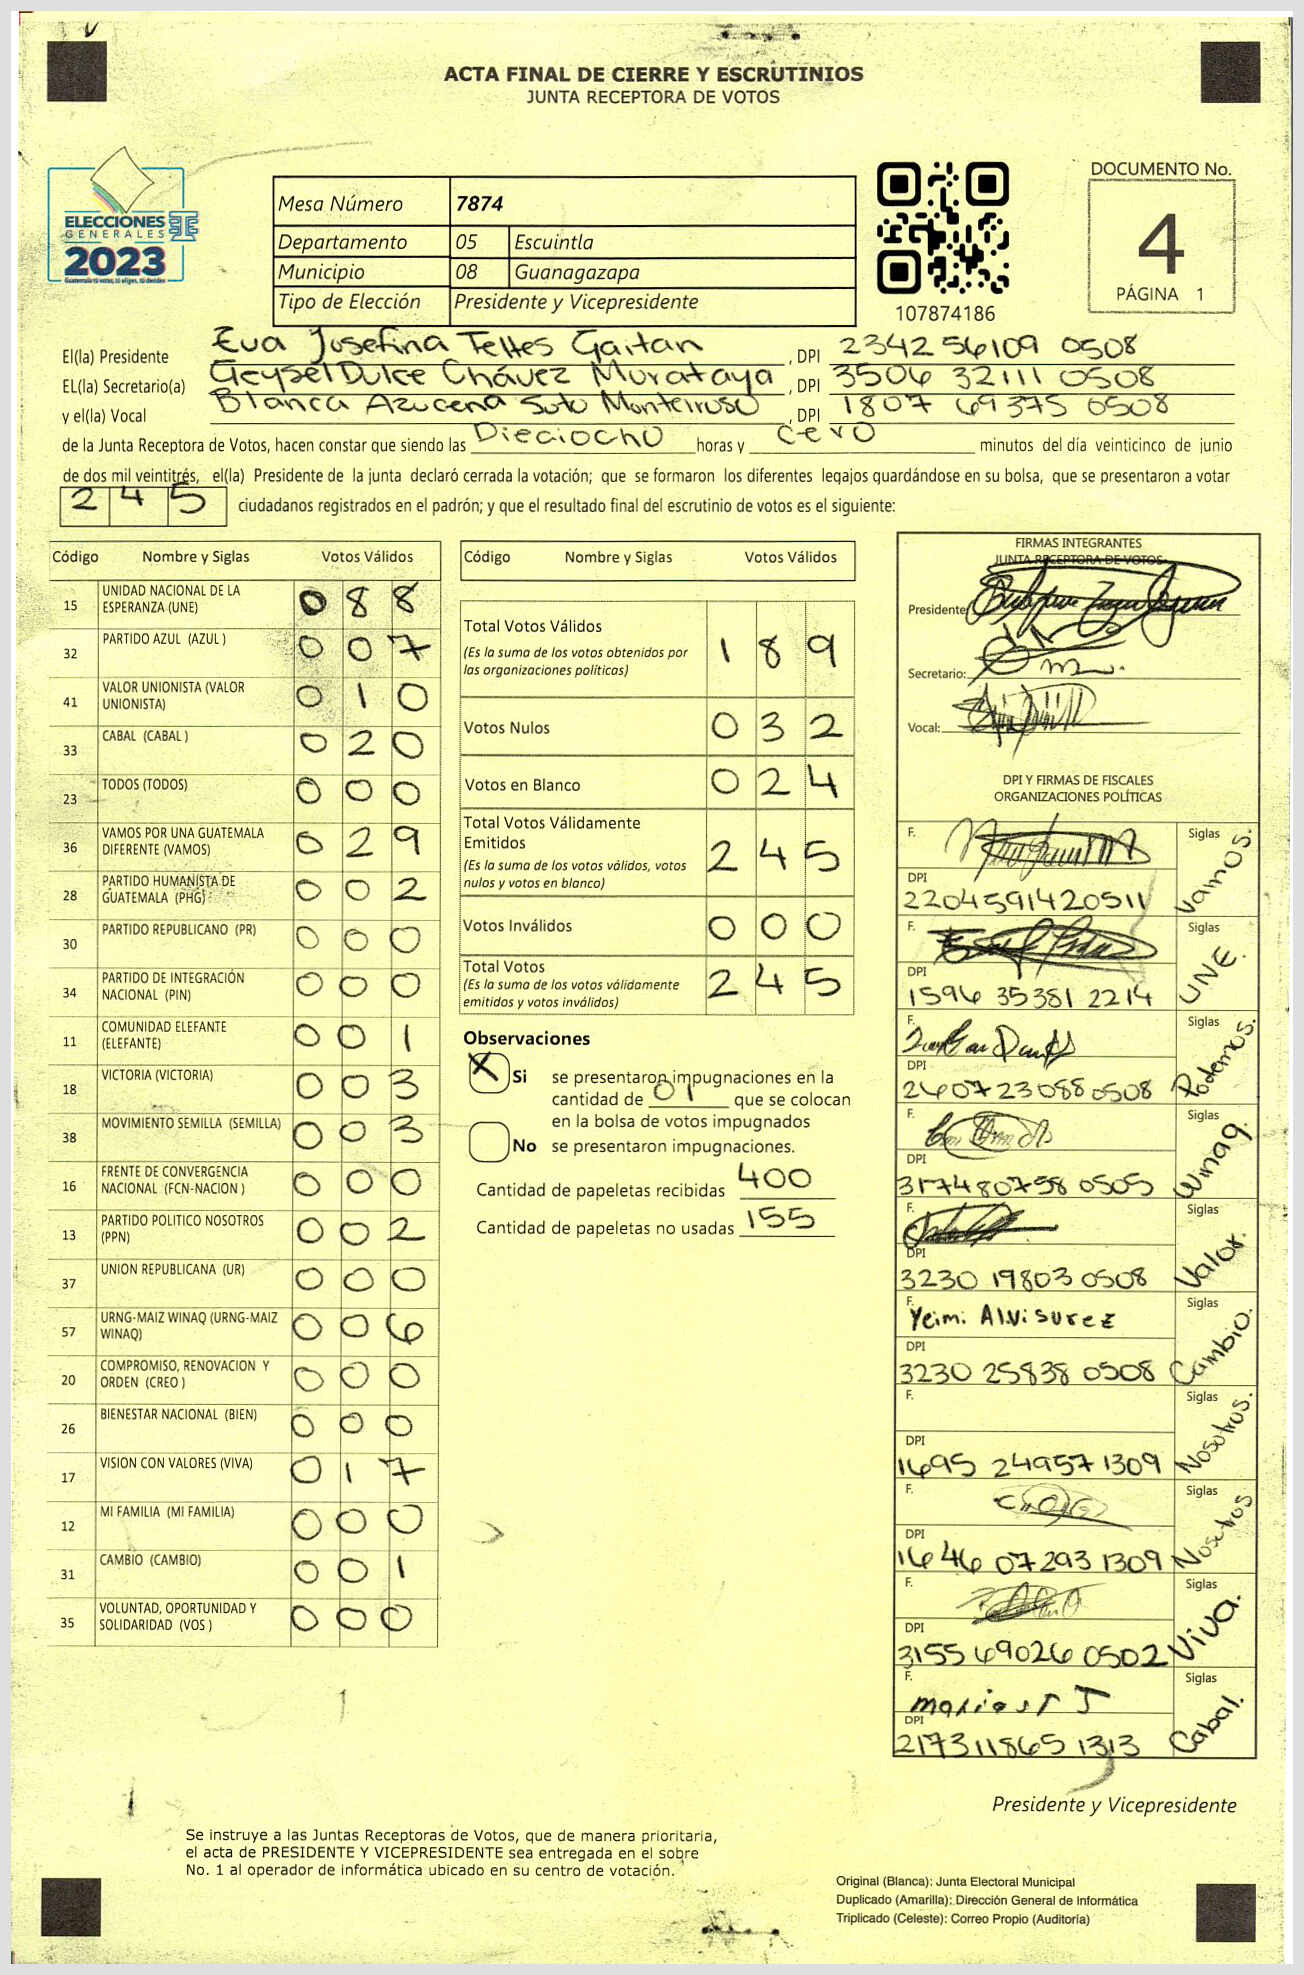 ACTA FINAL DE CIERRE Y ESCRUTINIOS
JUNTA RECEPTORA DE VOTOS
ELECCIONES
GENERALES
2023
Guatemala tú votas, tú eliges, tú decides
Mesa Número 7874
Departamento 05 Escuintla
Municipio 08 Guanagazapa
Tipo de Elección Presidente y Vicepresidente
107874186
DOCUMENTO No.
4
PÁGINA 1
El(la) Presidente Eva Josefina Telles Gaitan, DPI 2342 56109 0508
EL(la) Secretario(a) Geysel Dulce Chávez Morataya, DPI 3506 32111 0508
y el(la) Vocal Blanca Azucena Soto Monterroso, DPI 1807 69375 0508
de la Junta Receptora de Votos, hacen constar que siendo las Dieciocho horas y cero minutos del día veinticinco de junio
de dos mil veintitrés, el(la) Presidente de la junta declaró cerrada la votación; que se formaron los diferentes legajos guardándose en su bolsa, que se presentaron a votar
245 ciudadanos registrados en el padrón; y que el resultado final del escrutinio de votos es el siguiente:
Código Nombre y Siglas Votos Válidos
15 UNIDAD NACIONAL DE LA ESPERANZA (UNE) 088
32 PARTIDO AZUL (AZUL ) 007
41 VALOR UNIONISTA (VALOR UNIONISTA) 010
33 CABAL (CABAL ) 020
23 TODOS (TODOS) 000
36 VAMOS POR UNA GUATEMALA DIFERENTE (VAMOS) 029
28 PARTIDO HUMANISTA DE GUATEMALA (PHG) 002
30 PARTIDO REPUBLICANO (PR) 000
34 PARTIDO DE INTEGRACIÓN NACIONAL (PIN) 000
11 COMUNIDAD ELEFANTE (ELEFANTE) 001
18 VICTORIA (VICTORIA) 003
38 MOVIMIENTO SEMILLA (SEMILLA) 003
16 FRENTE DE CONVERGENCIA NACIONAL (FCN-NACION ) 000
13 PARTIDO POLITICO NOSOTROS (PPN) 002
37 UNION REPUBLICANA (UR) 000
57 URNG-MAIZ WINAQ (URNG-MAIZ WINAQ) 006
20 COMPROMISO, RENOVACION Y ORDEN (CREO ) 000
26 BIENESTAR NACIONAL (BIEN) 000
17 VISION CON VALORES (VIVA) 017
12 MI FAMILIA (MI FAMILIA) 000
31 CAMBIO (CAMBIO) 001
35 VOLUNTAD, OPORTUNIDAD Y SOLIDARIDAD (VOS ) 000
Código Nombre y Siglas Votos Válidos
Total Votos Válidos 189
(Es la suma de los votos obtenidos por
las organizaciones políticas)
Votos Nulos 032
Votos en Blanco 024
Total Votos Válidamente
Emitidos 245
(Es la suma de los votos válidos, votos
nulos y votos en blanco)
Votos Inválidos 000
Total Votos 245
(Es la suma de los votos válidamente
emitidos y votos inválidos)
Observaciones
X Si se presentaron impugnaciones en la
cantidad de 01 que se colocan
en la bolsa de votos impugnados
No se presentaron impugnaciones.
Cantidad de papeletas recibidas 400
Cantidad de papeletas no usadas 155
FIRMAS INTEGRANTES
JUNTA RECEPTORA DE VOTOS
Presidente:
Secretario:
Vocal:
DPI Y FIRMAS DE FISCALES
ORGANIZACIONES POLÍTICAS
F. Siglas Vamos.
DPI 2204591420511
F. Siglas UNE.
DPI 1596 35381 2214
F. Siglas Podemos.
DPI 2607230880508
F. Siglas Winaq.
DPI 317480758 0505
F. Siglas Valor.
DPI 3230 19803 0508
F. Yeimi Alvisurez Siglas Cambio.
DPI 3230 25838 0508
F. Siglas Nosotros.
DPI 1695 24957 1309
F. Siglas Nosotros
DPI 1646 07293 1309
F. Siglas Viva.
DPI 3155 69026 0502
F. Siglas Cabal.
DPI 217311865 1313
Presidente y Vicepresidente
Se instruye a las Juntas Receptoras de Votos, que de manera prioritaria,
el acta de PRESIDENTE Y VICEPRESIDENTE sea entregada en el sobre
No. 1 al operador de informática ubicado en su centro de votación.
Original (Blanca): Junta Electoral Municipal
Duplicado (Amarilla): Dirección General de Informática
Triplicado (Celeste): Correo Propio (Auditoría)